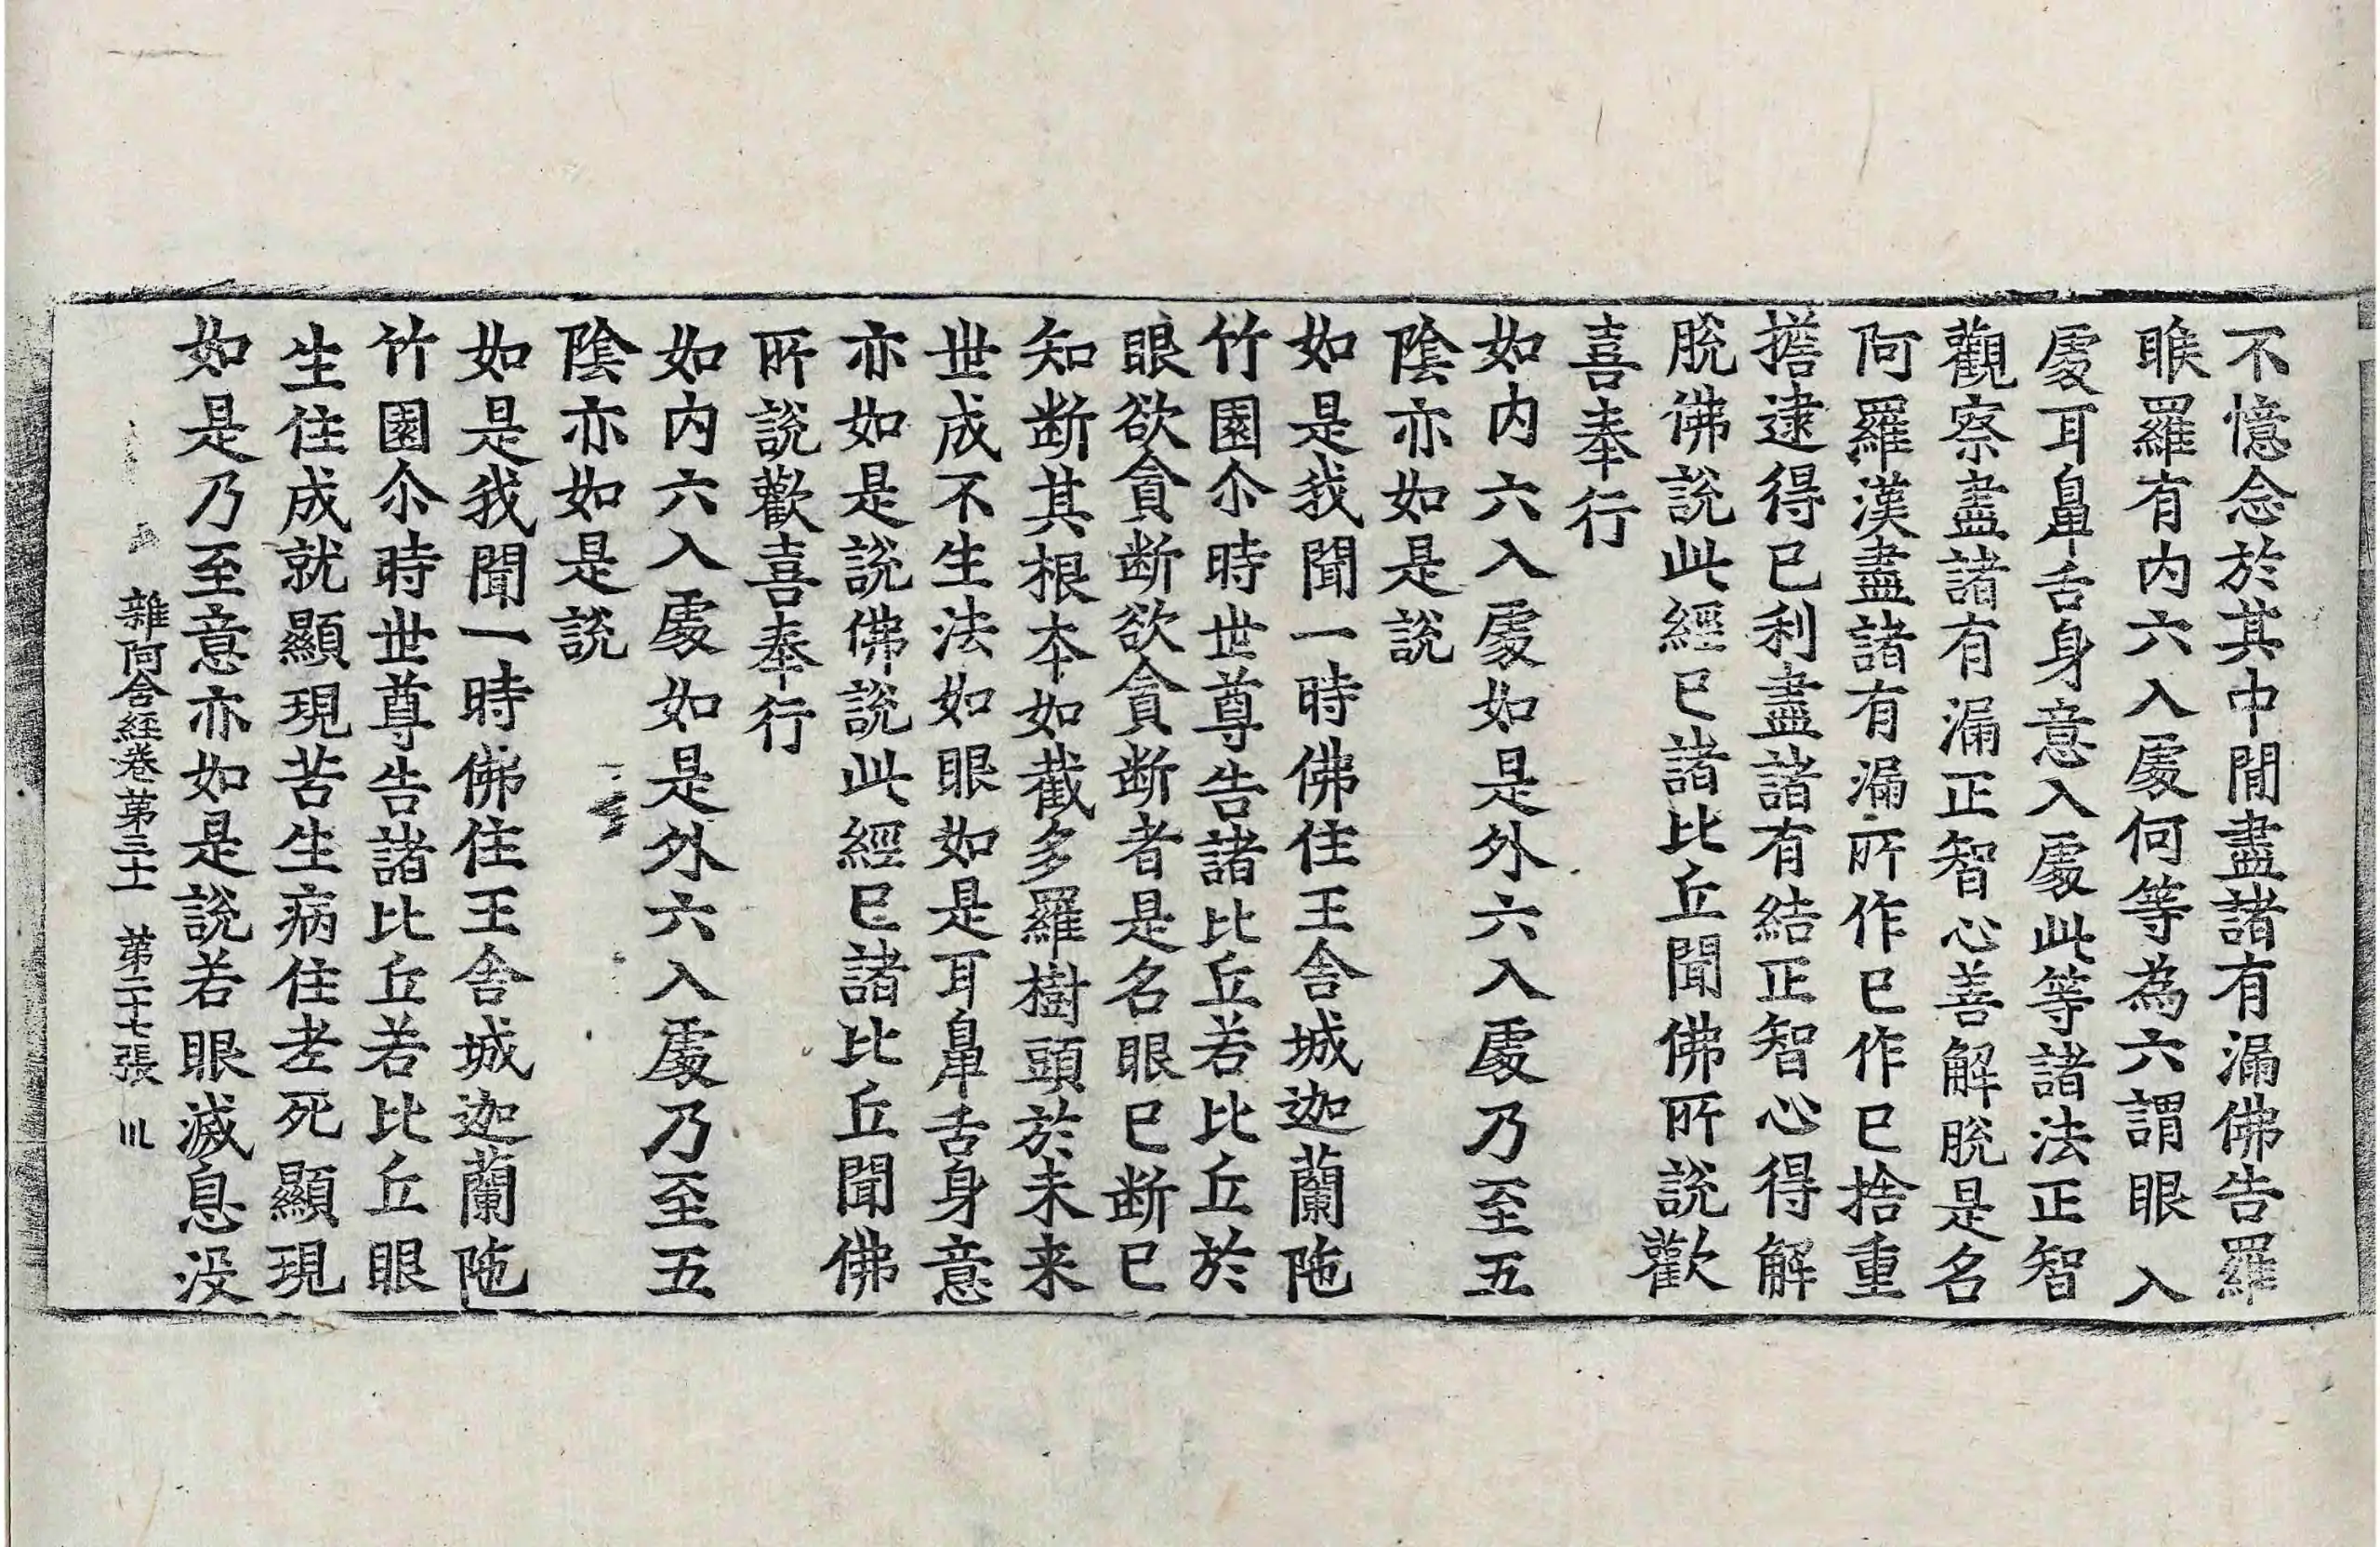 不憶念於其中閒盡諸有漏佛告羅
睺羅有内六入處何等為六謂眼入
處耳鼻舌身意入處此等諸法正智
觀察盡諸有漏正智心善解脫是名
阿羅漢盡諸有漏所作已作已捨重
擔逮得已利盡諸有結正智心得解
脫佛說此經已諸比丘聞佛所說歡
喜奉行
如内六入處如是外六入處乃至五
陰亦如是說
如是我聞一時佛住王舍城迦蘭陁
竹園尒時世尊告諸比丘若比丘於
眼欲貪断欲貪断者是名眼已断已
知断其根本如截多羅樹頭於未来
世成不生法如眼如是耳鼻舌身意
亦如是說佛說此經已諸比丘聞佛
所說歡喜奉行
如内六入處如是外六入處乃至五
陰亦如是說
如是我聞一時佛住王舍城迦蘭陁
竹園尒時世尊告諸比丘若比丘眼
生住成就顯現苦生病住老死顯現
如是乃至意亦如是說若眼滅息没
雜阿含經卷第三十一 第二十七張